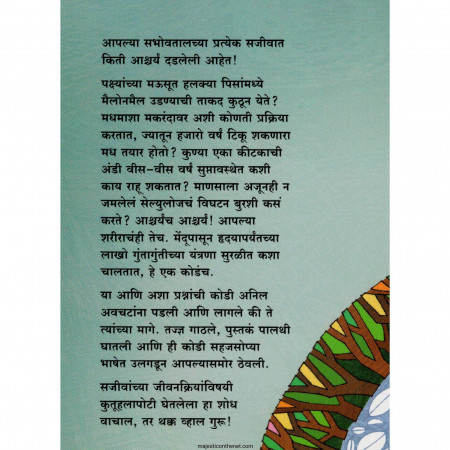 आपल्या सभोवतालच्या प्रत्येक सजीवात
किती आश्चर्यं दडलेली आहेत!
पक्ष्यांच्या मऊसूत हलक्या पिसांमध्ये
मैलोनमैल उडण्याची ताकद कुठून येते?
मधमाशा मकरंदावर अशी कोणती प्रक्रिया
करतात, ज्यातून हजारो वर्षं टिकू शकणारा
मध तयार होतो? कुण्या एका कीटकाची
अंडी वीस-वीस वर्षं सुप्तावस्थेत कशी
काय राहू शकतात? माणसाला अजूनही न
जमलेलं सेल्युलोजचं विघटन बुरशी कसं
करते? आश्चर्यंच आश्चर्यं! आपल्या
शरीराचंही तेच. मेंदूपासून हृदयापर्यंतच्या
लाखो गुंतागुंतीच्या यंत्रणा सुरळीत कशा
चालतात, हे एक कोडंच.
या आणि अशा प्रश्नांची कोडी अनिल
अवचटांना पडली आणि लागले की ते
त्यांच्या मागे. तज्ज्ञ गाठले, पुस्तकं पालथी
घातली आणि ही कोडी सहजसोप्या
भाषेत उलगडून आपल्यासमोर ठेवली.
सजीवांच्या जीवनक्रियांविषयी
कुतूहलापोटी घेतलेला हा शोध
वाचाल, तर थक्क व्हाल गुरू!
majesticonthenet.com